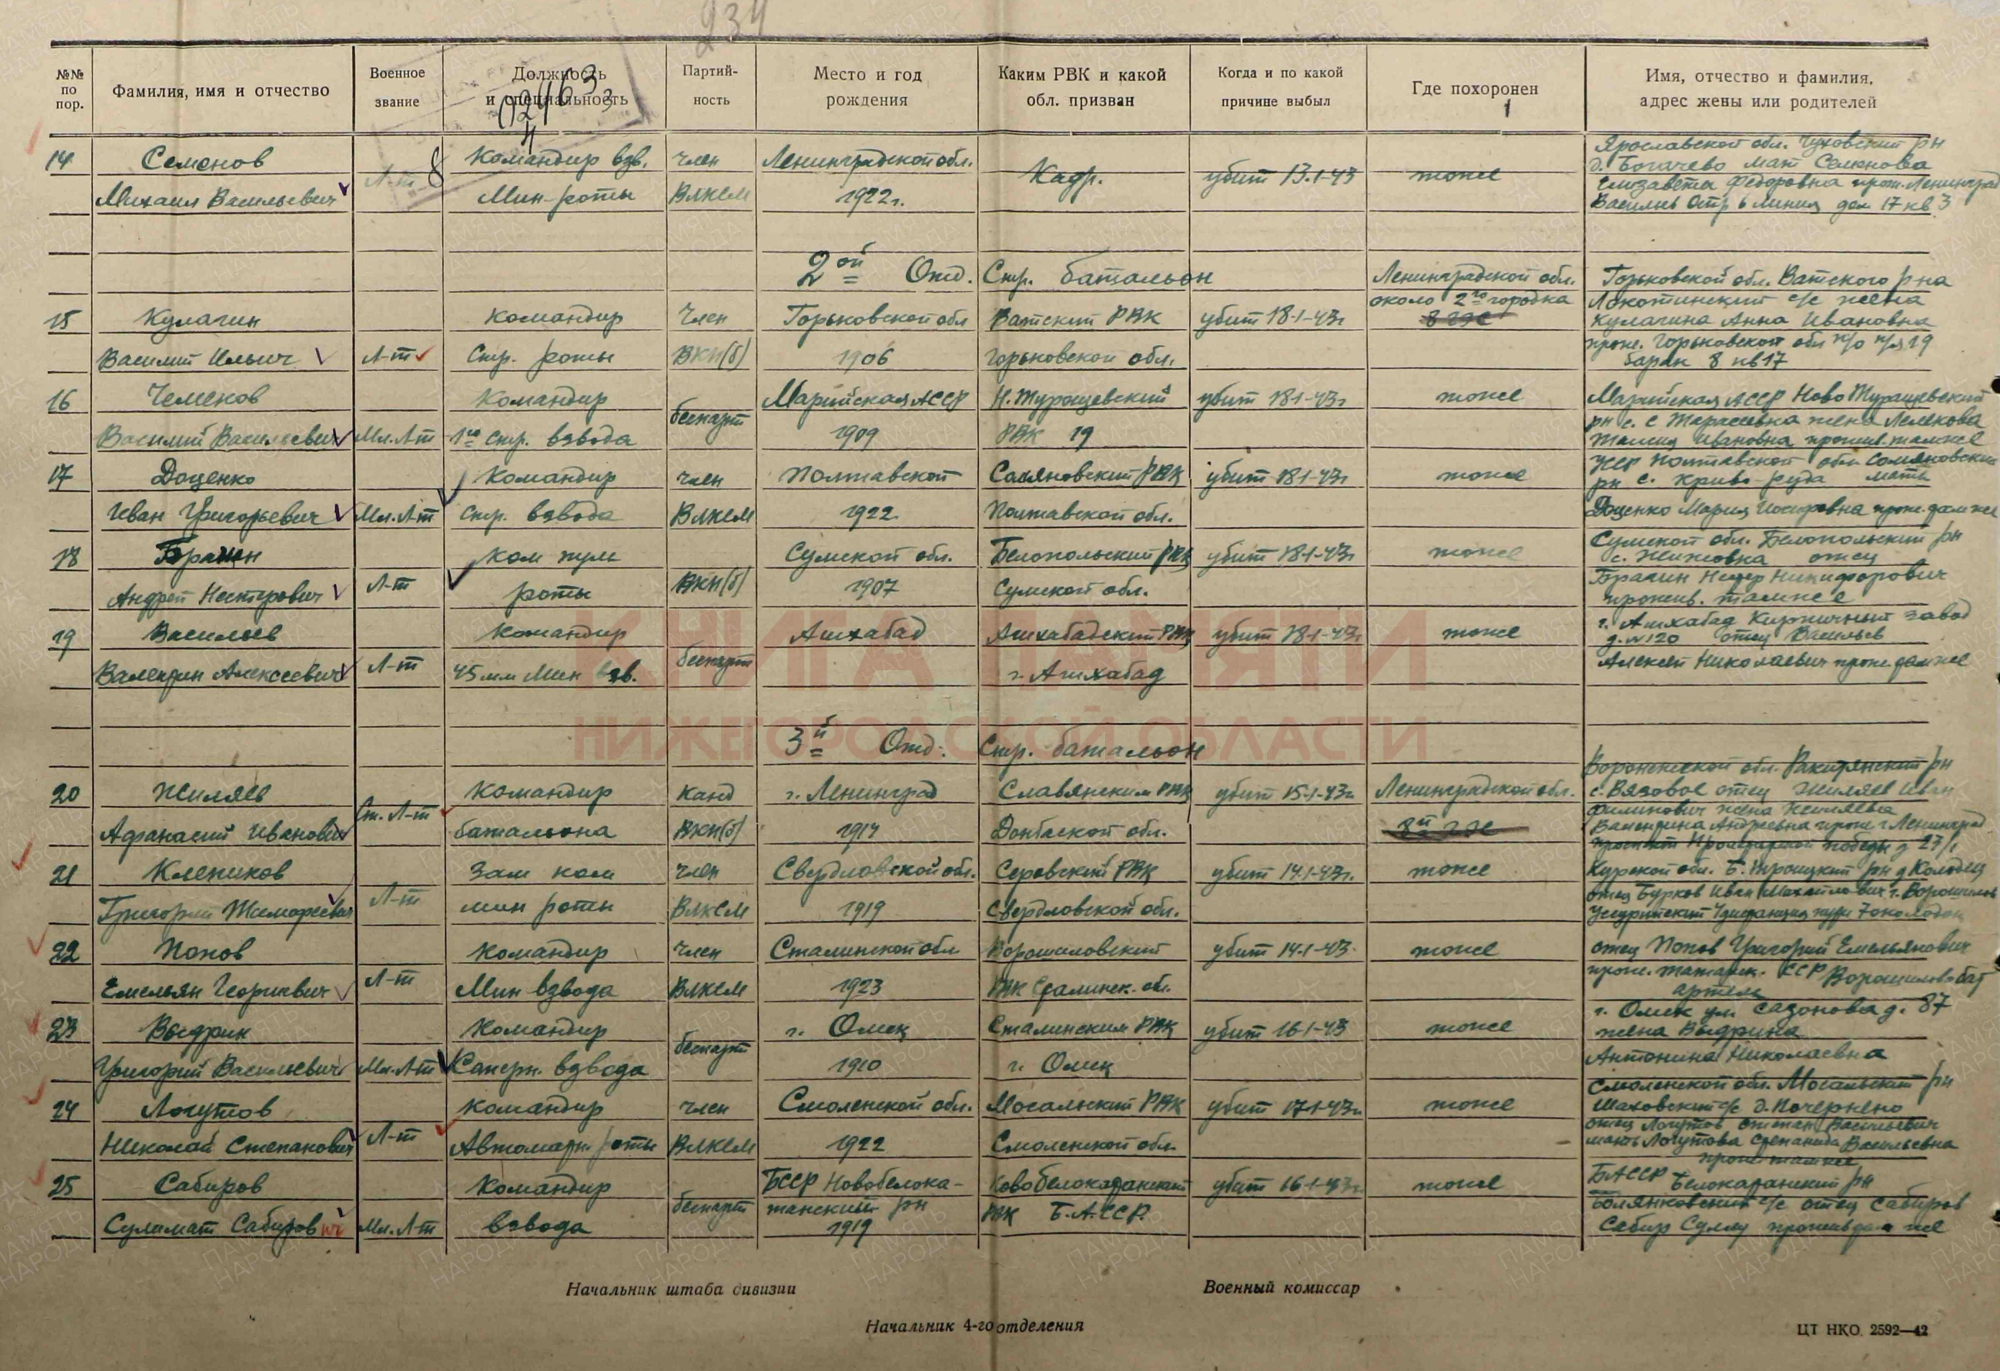 234
№№ по пор.
Фамилия, имя и отчество
Военное звание
Должность и специальность
Партий-ность
Место и год рождения
Каким РВК и какой обл. призван
Когда и по какой причине выбыл
Где похоронен
Имя, отчество и фамилия, адрес жены или родителей
024633
4
8
1
14 Семенов Командир взв. член Ленинградской обл. Кадр. убит 13.1-43 тоже Ярославской обл. рн
Михаил Васильевич Л-т Мин-роты ВЛКСМ 1922г. д. Богачево мат Семенова
Елизавета Федоровна прож. Ленинград
Васильев Остр 6 линия дом 17 кв 3
2ой Отд. Стр. батальон
15 Кулагин Командир Член Горьковской обл Ватский РВК убит 18-1-43г Ленинградской обл. около 2го городка Горьковской обл. Ватского р на
Василий Ильич Л-т Стр. роты ВКП(б) 1906 Горьковской обл. Локотинский с/с жена
Кулагина Анна Ивановна
прож. Горьковской обл п/о п/я 19
барак 8 кв 17
16 Командир беспарт Марийская АССР РВК убит 18-1-43г тоже Марийская АССР Ново
Василий Васильевич Мл. Л-т 1го стр. взвода 1909 РВК 19 жена
Ивановна прожив. тамже
17 Доценко Командир член Полтавской РВК убит 18-1-43г тоже УССР Полтавской обл.
Иван Григорьевич Мл. Л-т Стр. взвода ВЛКСМ 1922 Полтавской обл. рн с. мать
Доценко Мария прож. там же
18 Ком пул Сумской обл. Белопольский РВК убит 18-1-43г тоже Сумской обл. Белопольский рн
Андрей Нестерович Л-т роты ВКП(б) 1907 Сумской обл. отец
Никифорович
прожив. тамже
19 Васильев Командир беспарт Ашхабад Ашхабадский РВК убит 18-1-43г тоже г. Ашхабад Кирпичный завод
Валентин Алексеевич Л-т 45 мм Мин взв. г. Ашхабад д. №120 отец Васильев
Алексей Николаевич прож там же
3й Отд. Стр. батальон
20 Жиляев Командир Канд г. Ленинград Славянским РВК убит 15-1-43г Ленинградской обл. Воронежской обл. рн
Афанасий Иванович Ст. Л-т батальона ВКП(б) 1914 Донбаской обл. с. Вязовое отец Жиляев Иван
жена Жиляева
Андреевна прож г. Ленинград
21 Клепиков Зам ком член Свердловской обл. Серовский РВК убит 14.1-43г. тоже Курской обл. Б. Троицкий рн д Колодец
Григорий Л-т мин роты ВЛКСМ 1919 Свердловской обл. отец Бурков Иван Михайлович г. Ворошилов
22 Попов Командир Член Сталинской обл Ворошиловский убит 14.1-43 тоже отец Попов Григорий Емельянович
Емельян Георгиевич Л-т Мин взвода ВЛКСМ 1923 РВК Сталинск. обл. прож.
артель
23 Выдрин Командир беспарт г. Омск Сталинским РВК убит 16.1-43 тоже г. Омск ул. Сазонова д. 87
Григорий Васильевич Мл. Л-т Саперн. взвода 1910 г. Омск жена Выдрина
Антонина Николаевна
24 Логутов Командир член Смоленской обл. Мосальский РВК убит 17.1-43г тоже Смоленской обл. Мосальский рн
Николай Степанович Л-т Автоматн роты ВЛКСМ 1922 Смоленской обл. Шаховский с/с д.
отец Логутов Степан Васильевич
мать Логутова Степанида Васильевна
прож. тамже
25 Сабиров Командир беспарт БССР Новобелока- Новобелокатанский убит 16.1-43г. тоже БАССР Белокатанский рн
Суламат Сабирович Мл. Л-т взвода танский рн 1919 РВК Б.АССР. с/с отец Сабиров
Сабир прожив там же
КНИГА ПАМЯТИ
НИЖЕГОРОДСКОЙ ОБЛАСТИ
Начальник штаба дивизии
Военный комиссар
Начальник 4-го отделения
ЦТ НКО 2592—42